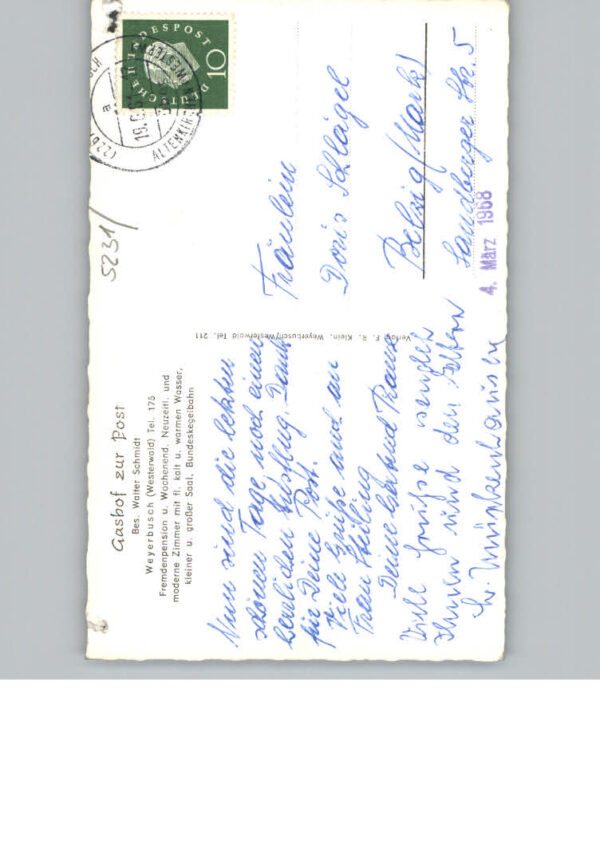 Gasthof zur Post
Bes. Walter Schmidt
Weyerbusch (Westerwald) Tel. 175
Fremdenpension u. Wochenend. Neuzeitl. und
moderne Zimmer mit fl. kalt u. warmen Wasser,
kleiner u. großer Saal, Bundeskegelbahn
Nun sind die letzten
schönen Tage noch einen
herrlichen Ausflug. Dank
für Deine Post.
Viele Grüße auch an
Frau
Deine
Viele Grüße
Ihnen und den Eltern
Verlag F. R. Klein, Weyerbusch/Westerwald Tel. 211
5231/
DEUTSCHE BUNDESPOST
10
Fräulein
Doris Schlägel
Belzig (Mark)
Sandberger Str. 5
4. März 1968